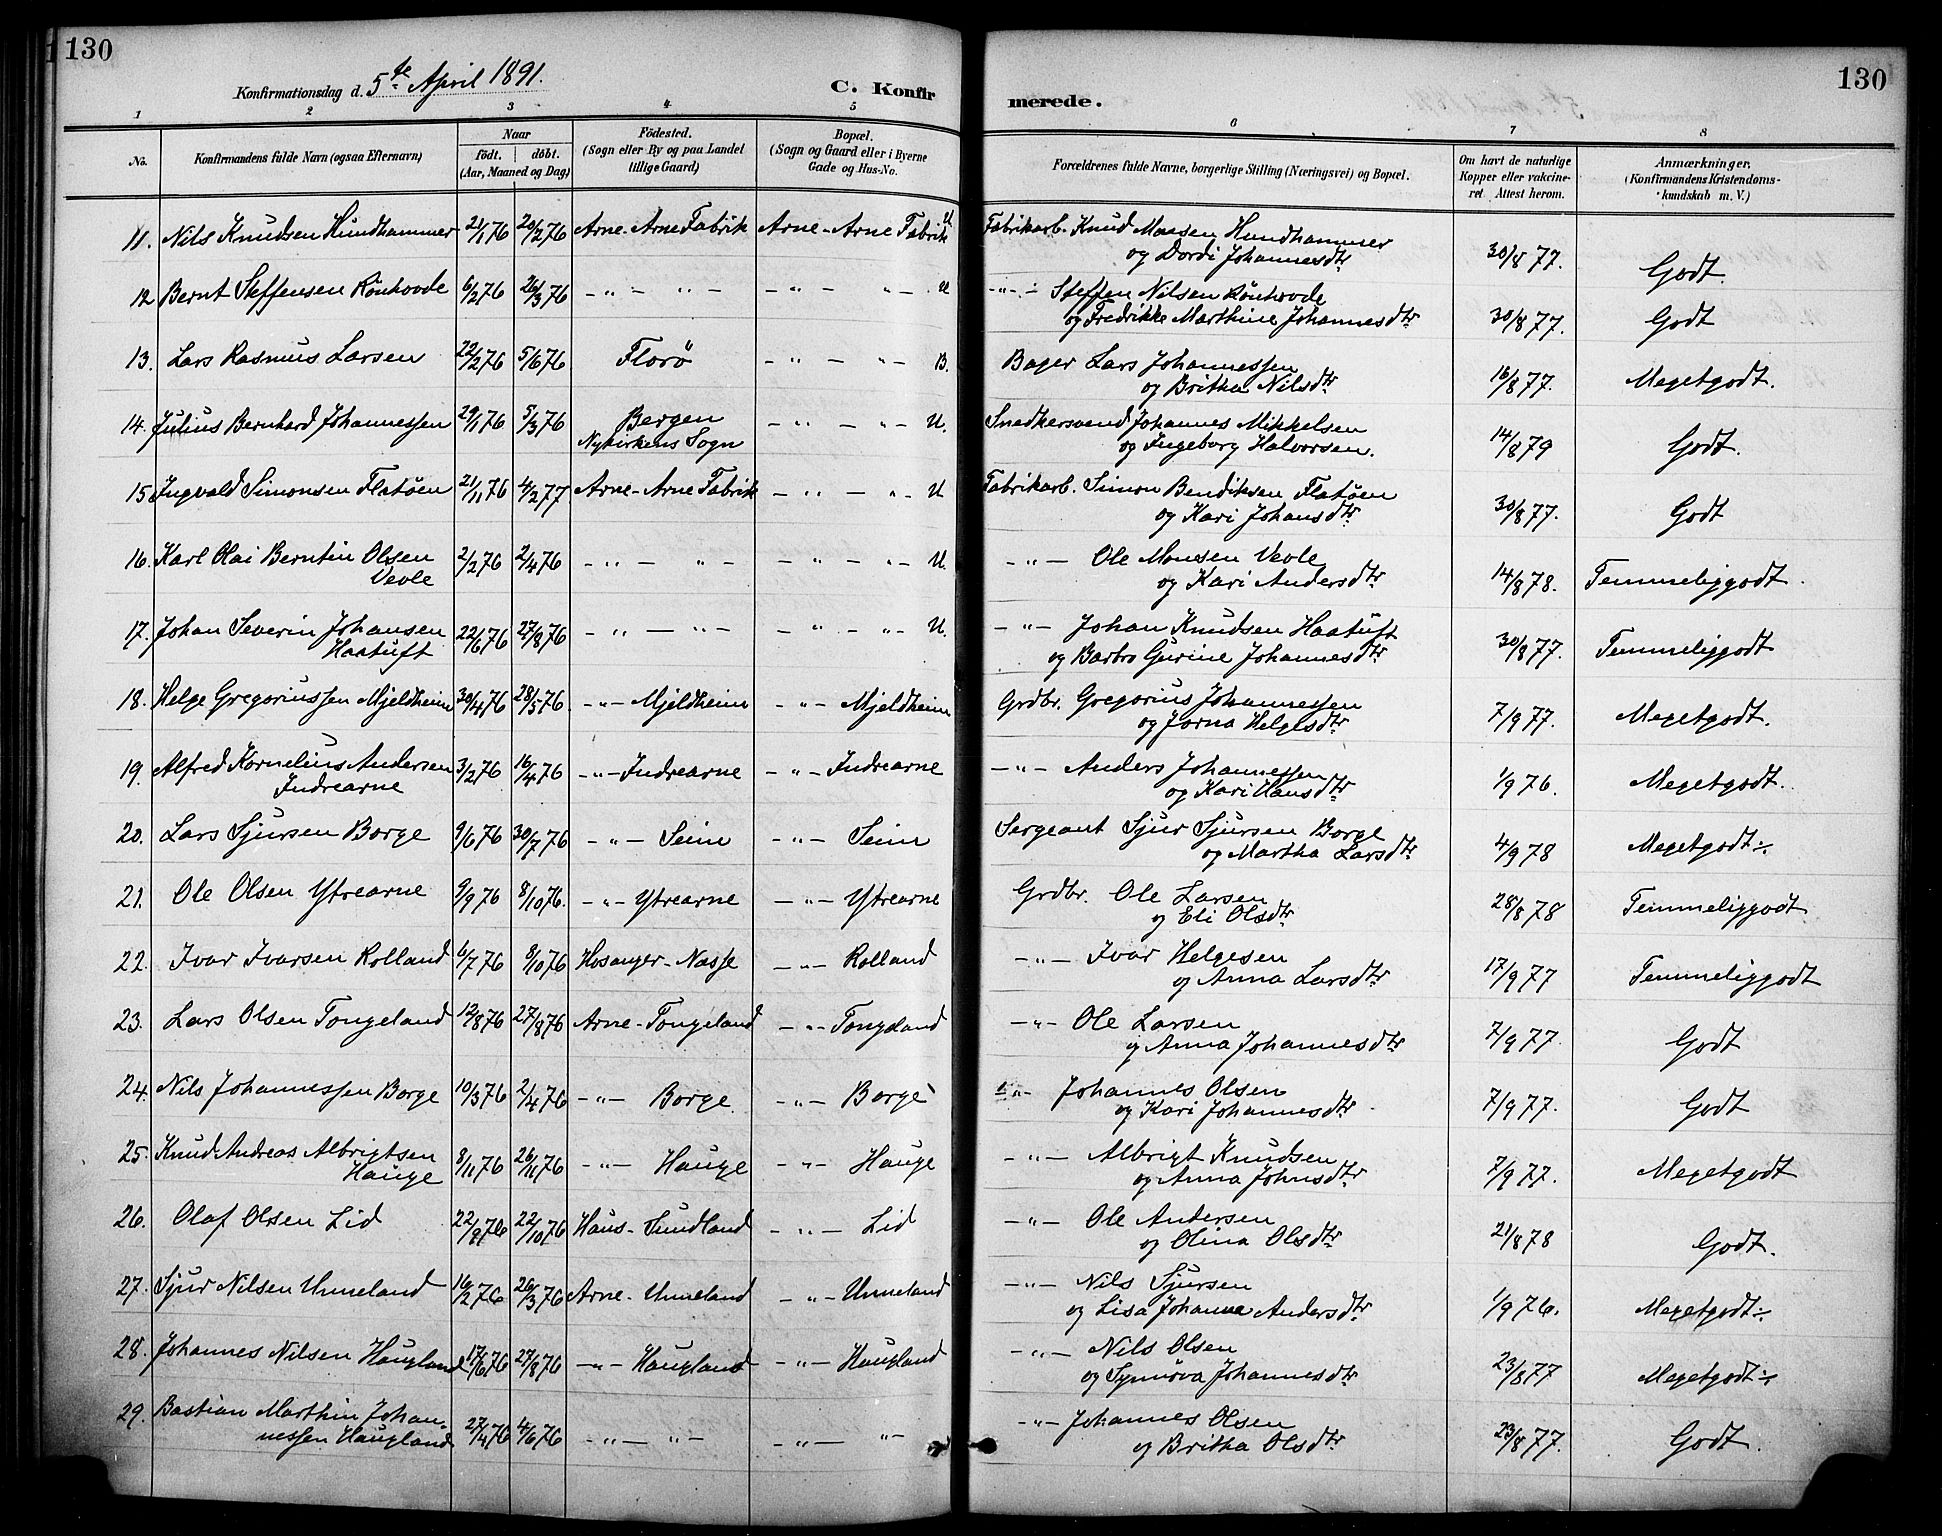 130
130
Konfirmationsdag d. 5te April 1891.
C. Konfir
merede.
1 2 3 4 5 6 7 8
No.
Konfirmandens fulde Navn (ogsaa Efternavn)
Naar
födt. döbt.
(Aar, Maaned og Dag)
Födested.
(Sogn eller By og paa Landet
tillige Gaard)
Bopæl.
(Sogn og Gaard eller i Byerne
Gade og Hus-No.
Forældrenes fulde Navne, borgerlige Stilling (Næringsvei) og Bopæl.
Om havt de naturlige
Kopper eller vakcine-
ret. Attest herom.
Anmærkninger.
(Konfirmandens Kristendoms-
kundskab m. V.)
11. Nils Knudsen Hundhammer 21/1 76 20/2 76 Arne-Arne Fabrik Arne-Arne Fabrik U Fabrikarb. Knud Monsen Hundhammer
og Dordi Johannesdtr 30/8 77. Godt.
12 Bernt Steffensen Rönhovde 6/2 76 26/3 76 -"- "- -"- "- U -"- Steffen Nilsen Rönhovde
og Fredrikke Marthine Johannesdtr 30/8 77. Godt
13. Lars Rasmus Larsen 22/2 76 5/6 76 Florö -"- "- B. Bager Lars Johannessen
og Britha Nilsdtr 16/8 77. Megetgodt.
14. Julius Bernhard Johannessen 29/1 76 5/3 76 Bergen -"- "- U. Snedkersvend Johannes Mikkelsen
Nykirkens Sogn og Ingeborg Halvorsen. 14/8 79 Godt.
15 Ingvald Simonsen Flatöen 21/11 76 4/2 77 Arne-Arne Fabrik -"- "- U Fabrikarb. Simon Bendiksen Flatöen
og Kari Johansdtr 30/8 77. Godt
16. Karl Olai Berntin Olsen 2/2 76 2/4 76 -"- "- -"- "- U. -"- Ole Monsen Vevle
Vevle og Kari Andersdtr 14/8 78. Temmeliggodt.
17. Johan Severin Johansen 22/6 76 27/8 76 -"- "- -"- "- U. -"- Johan Knudsen Haatuft
Haatuft og Barbro Gurine Johannesdtr 30/8 77. Temmeliggodt
18. Helge Gregoriussen Mjeldheim 30/4 76 28/5 76. -"- Mjeldheim -"- Mjeldheim Grdbr. Gregorius Johannessen
og Jorna Helgesdtr 7/9 77. Megetgodt.
19. Alfred Kornelius Andersen 3/2 76 16/4 76 -"- Indrearne -"- Indrearne -"- Anders Johannessen
Indrearne og Kari Hansdtr 1/9 76. Megetgodt.
20. Lars Sjursen Borge 9/6 76 30/7 76 -"- Seim -"- Seim Sergeant Sjur Sjursen Borge
og Martha Larsdtr 4/9 78 Megetgodt÷
21. Ole Olsen Ytrearne 9/9 76 8/10 76. -"- Ytrearne -"- Ytrearne Grdbr. Ole Larsen
og Eli Olsdtr 28/8 78 Temmeliggodt
22. Ivar Ivarsen Rolland 6/7 76 8/10 76 Hosanger-Nasse -"- Rolland -"- Ivar Helgesen
og Anna Larsdtr 17/9 77 Temmeliggodt
23. Lars Olsen Tongeland 12/8 76 27/8 76 Arne-Tongeland -"- Tongeland -"- Ole Larsen
og Anna Johannesdtr 7/9 77. Godt
24. Nils Johannessen Borge 10/3 76 2/4 76 -"- Borge. -"- Borge -"- Johannes Olsen
og Kari Johannesdtr 7/9 77. Godt
25. Knud Andreas Albrigtsen 8/11 76 26/11 76 -"- Hauge -"- Hauge -"- Albrigt Knudsen
Hauge og Anna Johnsdtr 7/9 77. Megetgodt
26. Olaf Olsen Lid 22/9 76 22/10 76 Haus-Sundland -"- Lid -"- Ole Andersen
og Olina Olsdtr 21/8 78 Godt.
27. Sjur Nilsen Unneland 16/2 76 26/3 76 Arne-Unneland -"- Unneland -"- Nils Sjursen
og Lisa Johanna Andersdtr 1/9 76. Megetgodt÷
28. Johannes Nilsen Haugland 17/6 76 27/8 76 -"- Haugland -"- Haugland -"- Nils Olsen
og Synnöva Johannesdtr 23/8 77 Megetgodt÷
29. Bastian Marthin Johan-
nessen Haugland 27/4 76 4/6 76 -"- "- -"- "- -"- Johannes Olsen
og Britha Olsdtr 23/8 77. Godt.